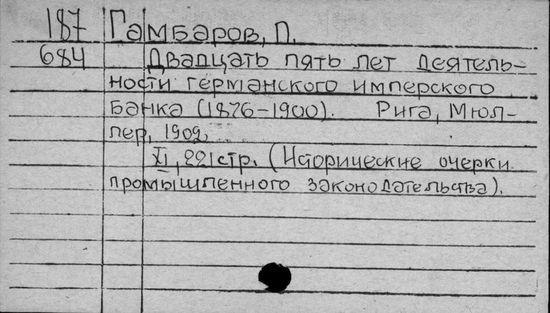 187 Гамбаров, П.
684 Двадцать пять лет деятель-
ности германского имперского
банка (1876-1900). Рига, Мюл-
лер, 1902.
XI, 221 стр. (Исторические очерки
промышленного законодательства).